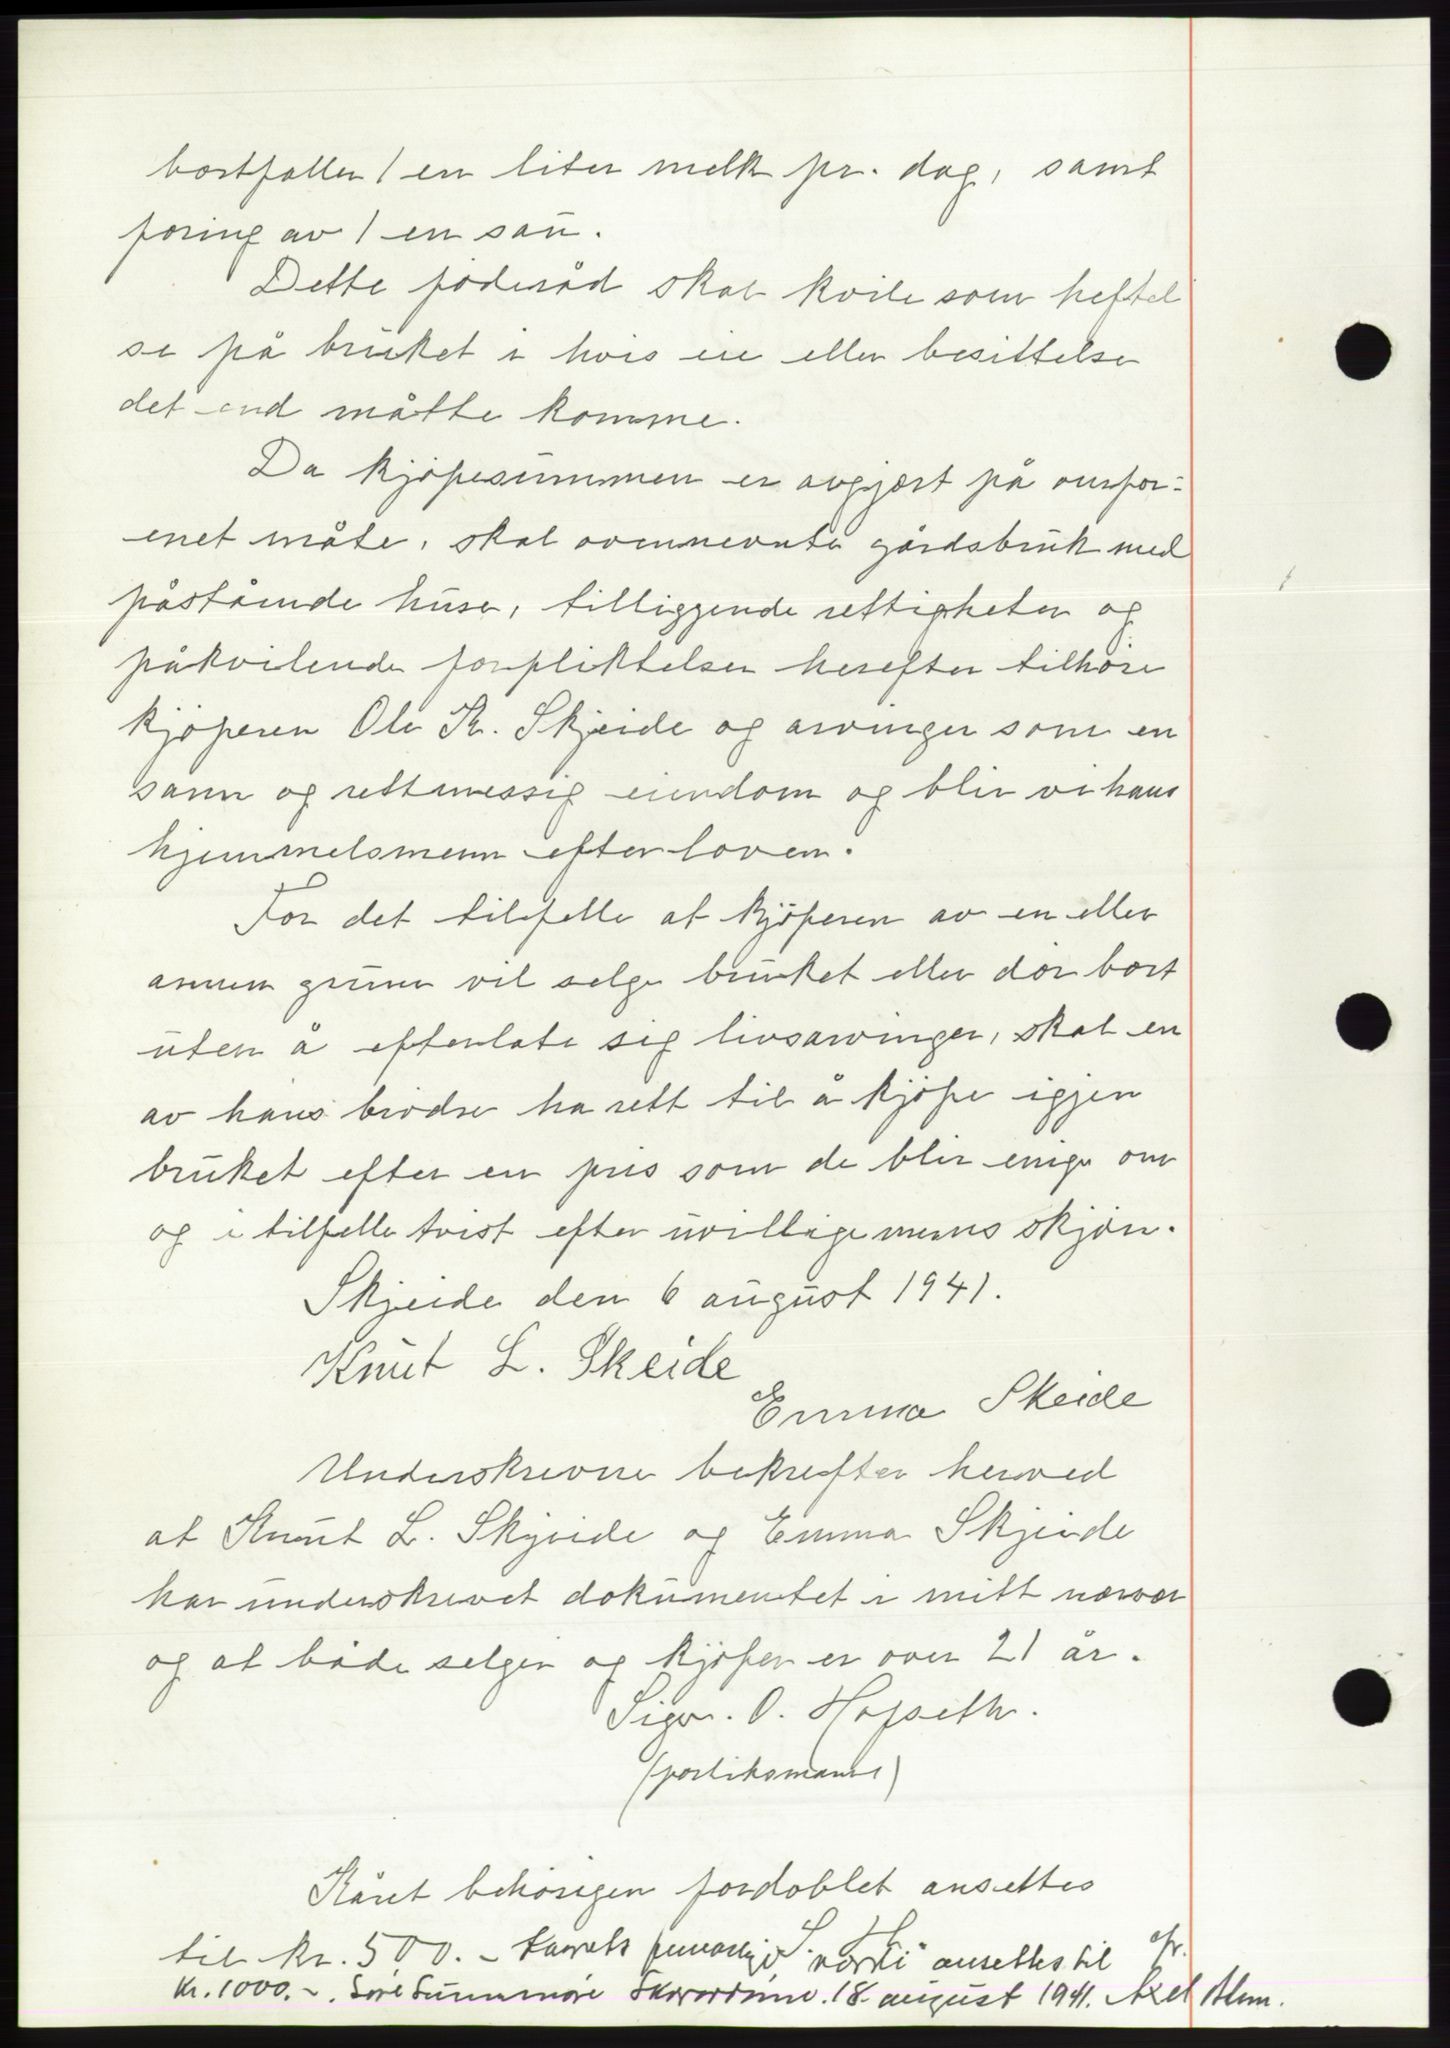 bortfaller 1 en liter melk pr. dag, samt
foring av 1 en sau.
Dette føderåd skal kvile som heftel
se på bruket i hvis eie eller besittelse
det end måtte komme.
Da kjøpesummen er avgjort på omfor-
enet måte, skal ovennevnte gårdsbruk med
påstående huse, tilliggende rettigheter og
påkvilende forpliktelser herefter tilhøre
kjøperen Ole K. Skjeide og arvinger som en
sann og rettmessig eiendom og blir vi hans
hjemmelsmenn efter loven.
For det tilfelle at kjøperen av en eller
annen grunn vil selge bruket eller dør bort
uten å efterlate sig livsarvinger, skal en
av hans brødre ha rett til å kjøpe igjen
bruket efter en pris som de blir enige om
og i tilfelle tvist efter uvillige menns skjøn.
Skjeide den 6 august 1941.
Knut L. Skeide
Emma Skeide
Underskrevne bekrefter herved
at Knut L. Skjeide og Emma Skjeide
har underskrevet dokumentet i mitt nærvær
og at både selger og kjøper er over 21 år.
Sigv. O. Hofseth.
(forliksmann)
Kåret behørigen fordoblet ansettes
til kr. 500.- S. H.
verdi ansettes til
kr. 1000.-. Søre Sunnmøre Skrivarstime. 18. august 1941. Axel Alm.